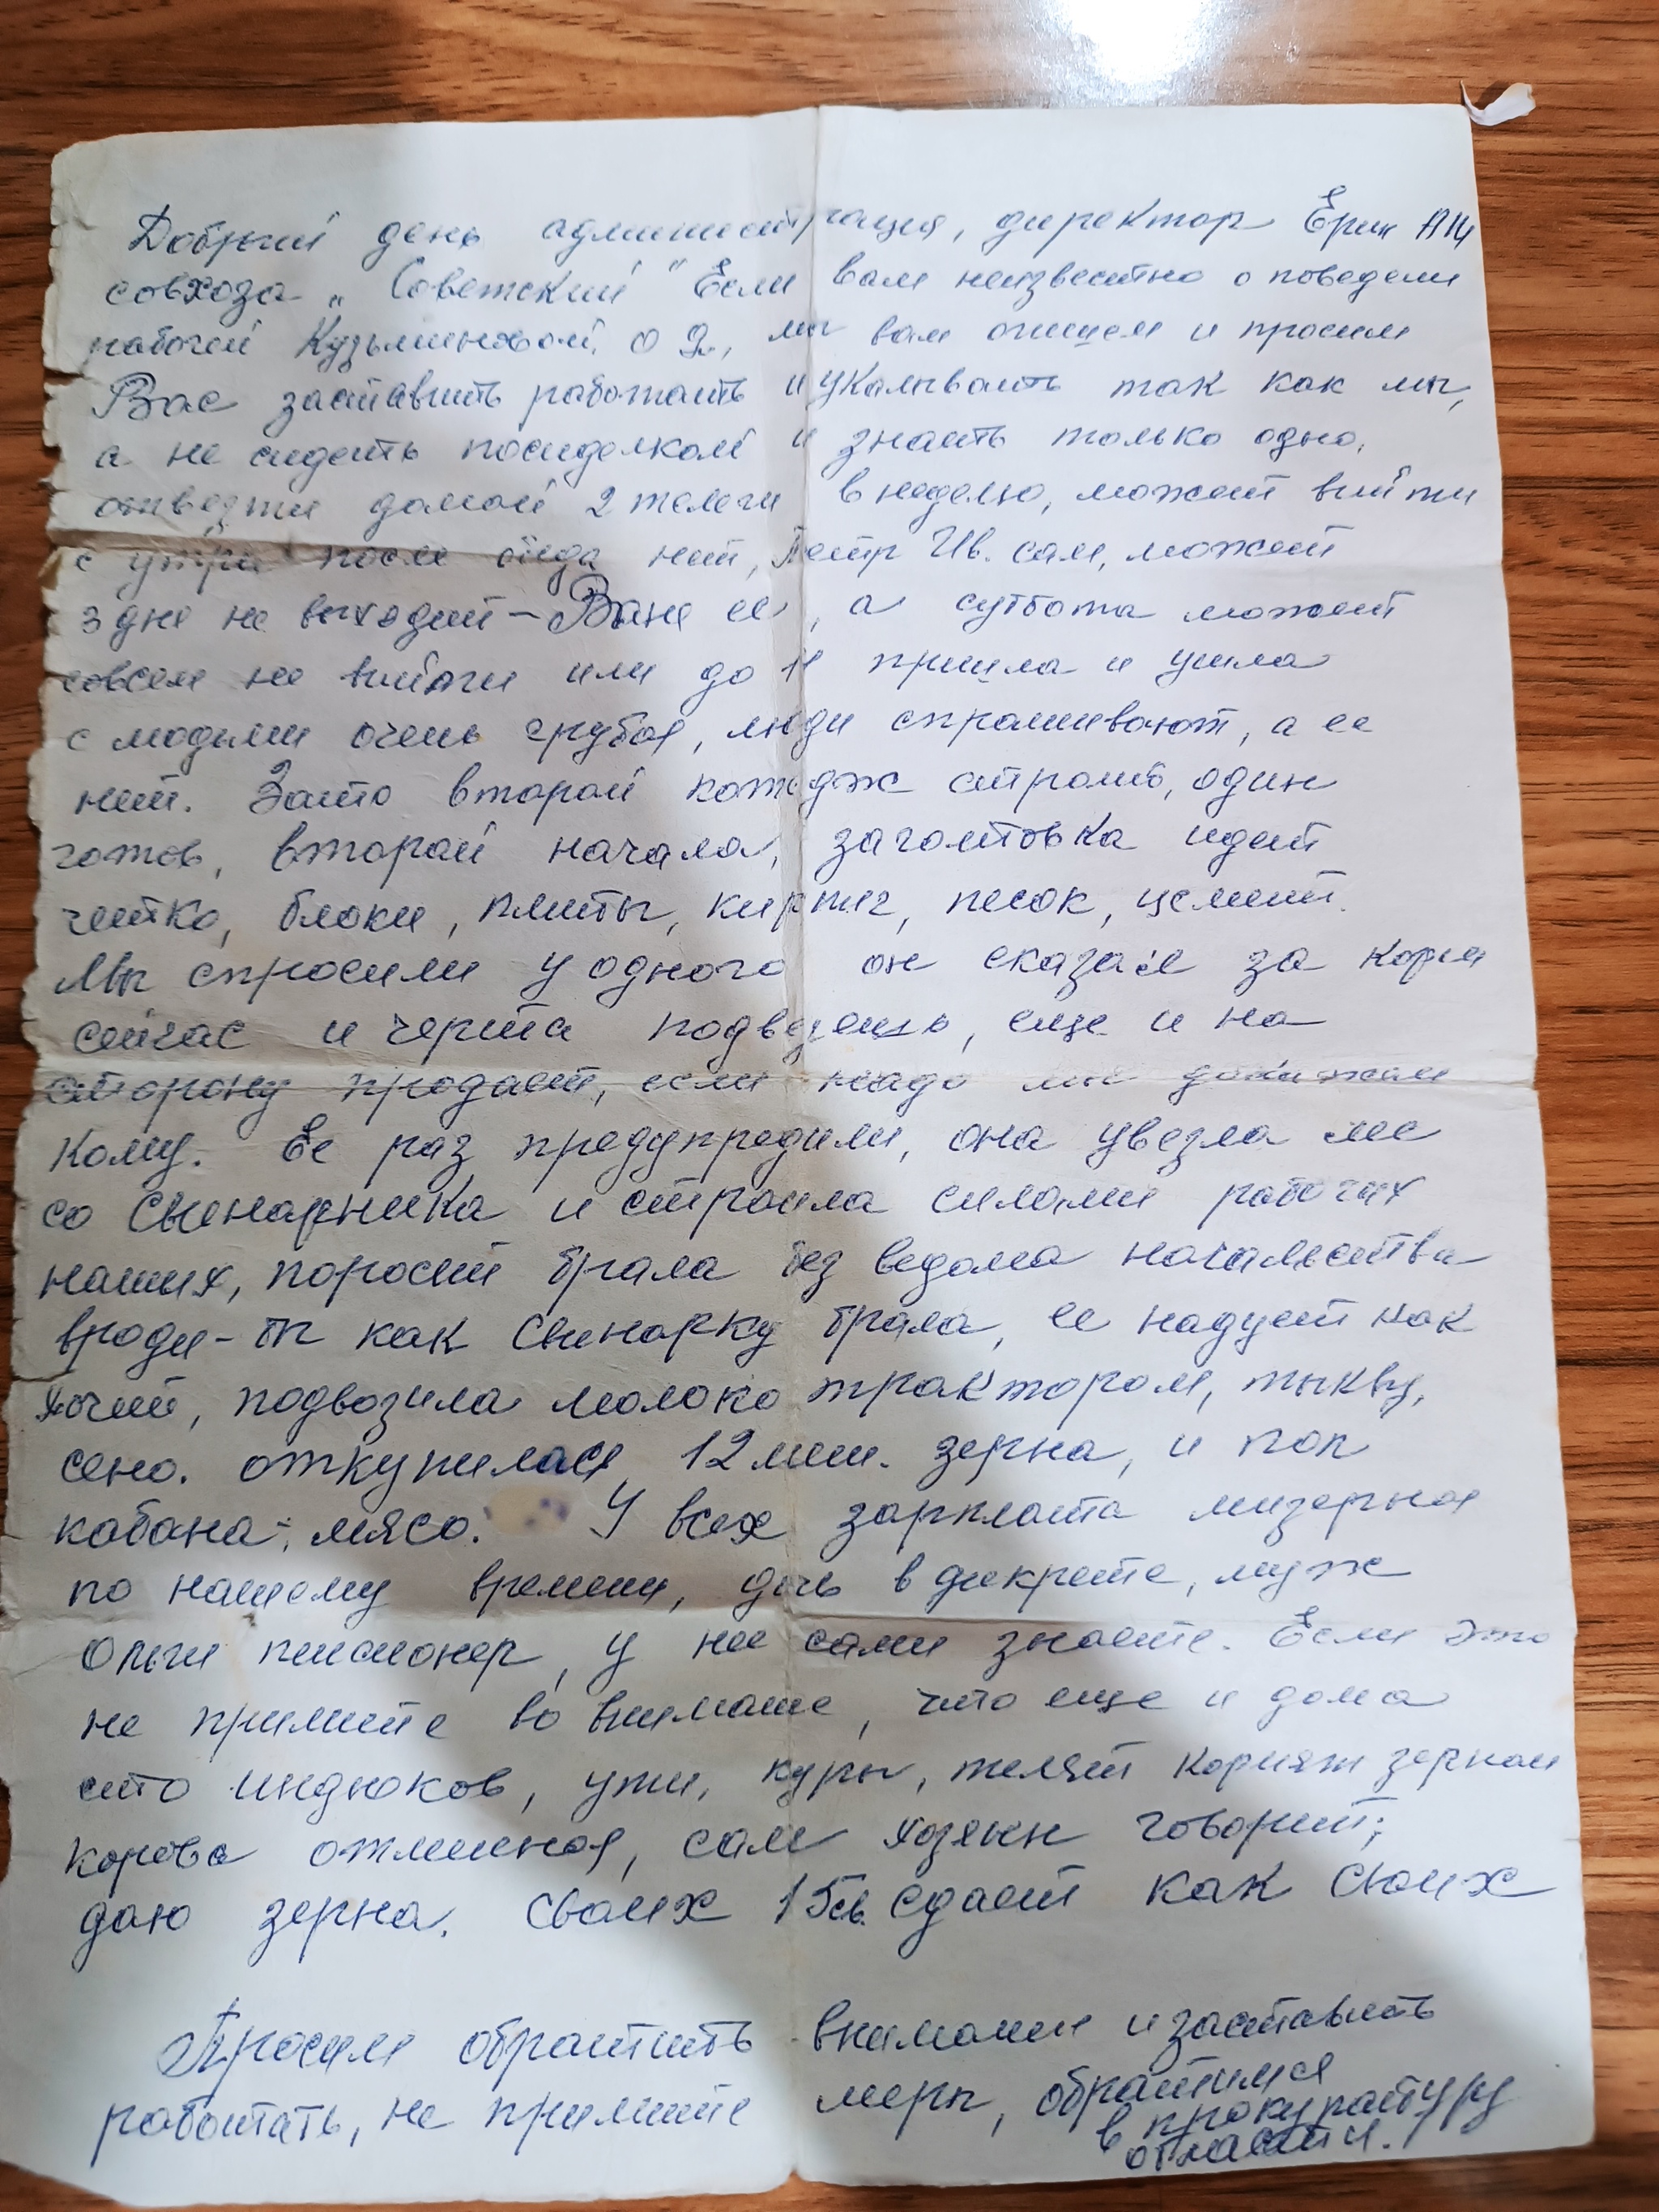 Добрый день администрация, директор Ерин АЩ
совхоза „Советский" Если вам неизвестно о поведени
рабочей Кузьминховой О Д., мы вам опишем и просим
Вас заставить работать и укалывать так как мы,
а не сидеть посиделкой и знать только одно,
отвезти домой 2 телеги в неделю, может вийти
с утра после обеда нет, Петр Ив. сам, может
3 дня не выходит – Ваня ее, а суббота может
совсем не вийти или до 11 пришла и ушла
с людьми очень грубая, люди спрашивают, а ее
нет. Зато второй котедж строит, один
готов, второй начала, заготовка идет
четко, блоки, плиты, кирпич, песок, цемент.
Мы спросили у одного он сказал за корм
сейчас и черта подвезешь, еще и на
сторону продает, если надо мы докажем
кому. Ее раз предупредили, она увезла
со свинарника и строила силами рабочих
наших, поросят брала без ведома начальства
вроди-бы как свинарку брала, ее надует как
хочит, подвозила молоко трактором, тыкву,
сено. откупилася 12 меш. зерна, и пол
кабана: мясо. У всех зарплата мизерная
по нашему времени, дочь в дикрете, муж
Ольги пинсионер, у нее сами знаете. Если это
не примите во внимание, что еще и дома
сто индюков, ути, куры, телят кормят зерном
корова отличная, сам хозяин говорит;
даю зерна. своих 15 сдает как своих
Просим обратить внимании и заставить
работать, не примите меры, обратимся
в прокуратуру
области.